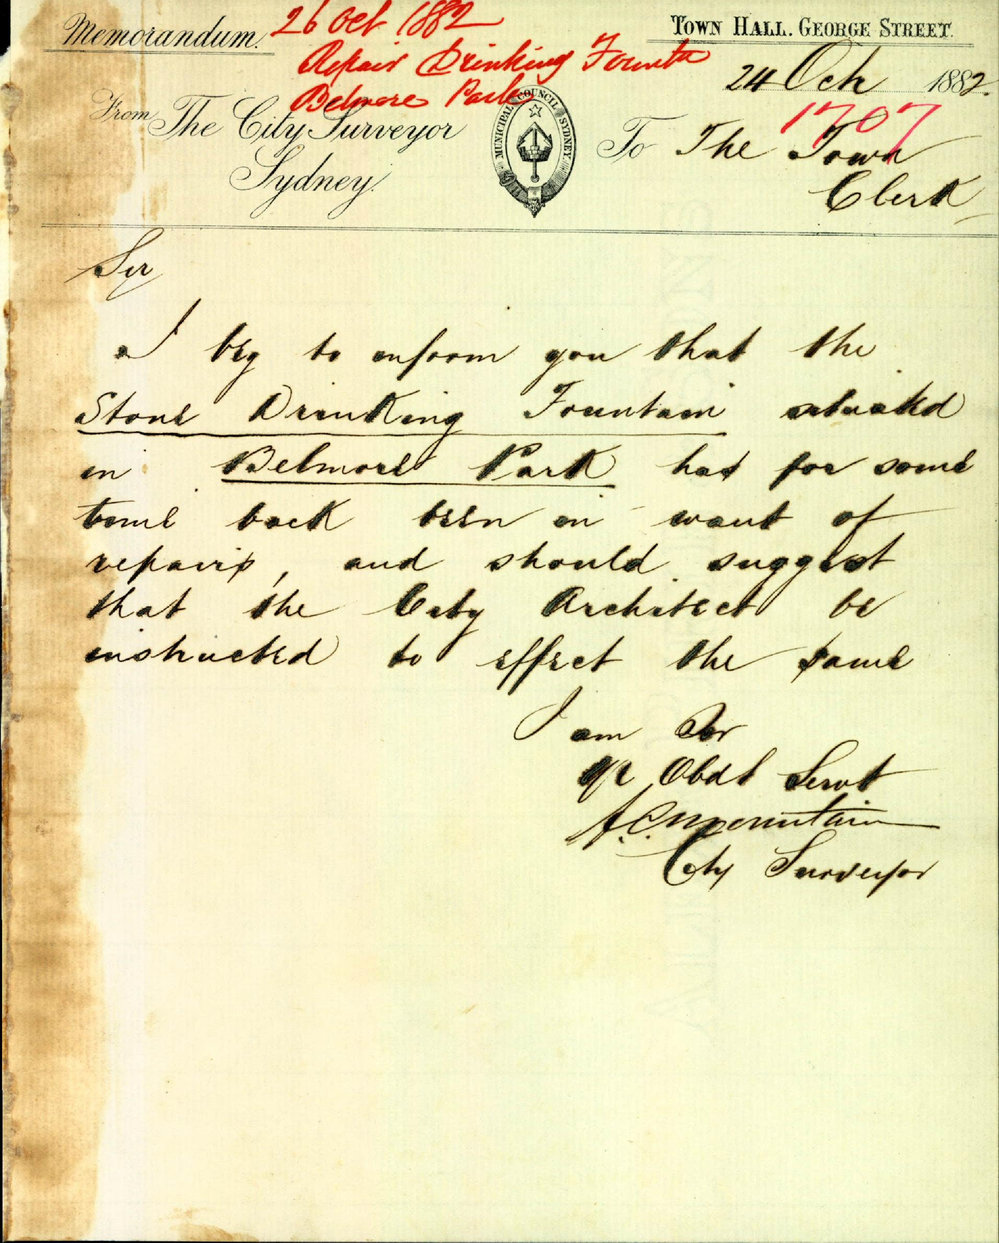 Memorandum.
26 Oct 1882
Repair Drinking Fountn
Belmore Park
Town Hall. George Street.
24 Oct 1882.
1707
From The City Surveyor
Sydney.
MUNICIPAL COUNCIL SYDNEY
To The Town
Clerk
Sir
I beg to inform you that the
Stone Drinking Fountain situated
in Belmore Park has for some
time back been in want of
repairs, and should suggest
that the City Architect be
instructed to effect the same
I am Sir
Yr Obdt Servt
A.C. Mountain
City Surveyor